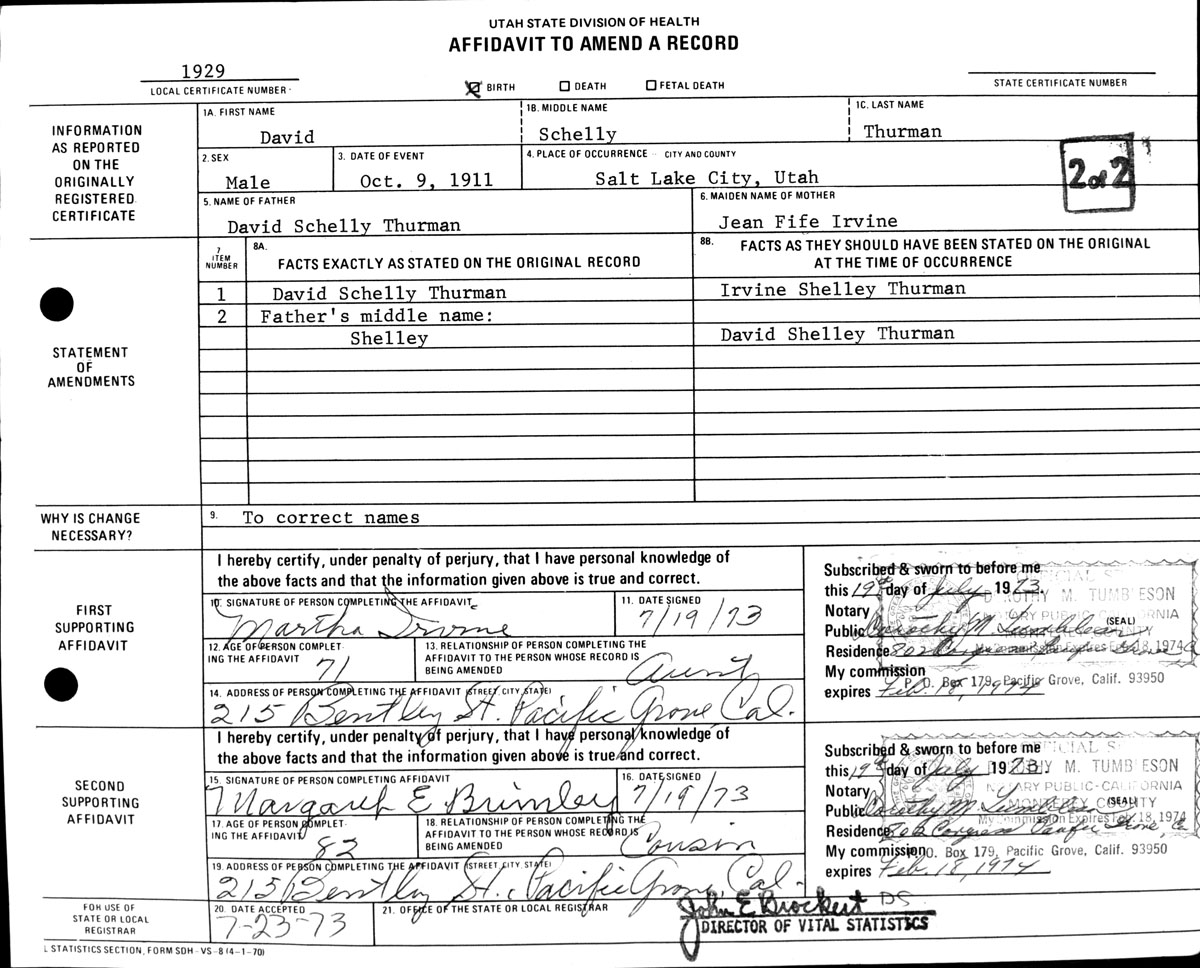 UTAH STATE DIVISION OF HEALTH
AFFIDAVIT TO AMEND A RECORD
1929
LOCAL CERTIFICATE NUMBER
BIRTH
DEATH
FETAL DEATH
STATE CERTIFICATE NUMBER
INFORMATION
AS REPORTED
ON THE
ORIGINALLY
REGISTERED
CERTIFICATE
1A. FIRST NAME
David
1B. MIDDLE NAME
Schelly
1C. LAST NAME
Thurman
2. SEX
Male
3. DATE OF EVENT
Oct. 9, 1911
4. PLACE OF OCCURRENCE CITY AND COUNTY
Salt Lake City, Utah
2 of 2
5. NAME OF FATHER
David Schelly Thurman
6. MAIDEN NAME OF MOTHER
Jean Fife Irvine
STATEMENT
OF
AMENDMENTS
7
ITEM
NUMBER
8A.
FACTS EXACTLY AS STATED ON THE ORIGINAL RECORD
8B. FACTS AS THEY SHOULD HAVE BEEN STATED ON THE ORIGINAL
AT THE TIME OF OCCURRENCE
1 David Schelly Thurman Irvine Shelley Thurman
2 Father's middle name:
Shelley David Shelley Thurman
WHY IS CHANGE
NECESSARY?
9. To correct names
FIRST
SUPPORTING
AFFIDAVIT
I hereby certify, under penalty of perjury, that I have personal knowledge of
the above facts and that the information given above is true and correct.
10. SIGNATURE OF PERSON COMPLETING THE AFFIDAVIT
Martha Irvine
11. DATE SIGNED
7/19/73
12. AGE OF PERSON COMPLET-
ING THE AFFIDAVIT
71
13. RELATIONSHIP OF PERSON COMPLETING THE
AFFIDAVIT TO THE PERSON WHOSE RECORD IS
BEING AMENDED
Aunt
14. ADDRESS OF PERSON COMPLETING THE AFFIDAVIT (STREET, CITY, STATE)
215 Bentley St. Pacific Grove Cal.
Subscribed & sworn to before me
this 19th day of July 1973.
Notary
Public Dorothy M.
(SEAL)
Residence 802 Congress
My commission
expires Feb. 18, 1974
DOROTHY M. TUMB ESON
NOTARY PUBLIC-CALIFORNIA
P. O. Box 179, Pacific Grove, Calif. 93950
SECOND
SUPPORTING
AFFIDAVIT
I hereby certify, under penalty of perjury, that I have personal knowledge of
the above facts and that the information given above is true and correct.
15. SIGNATURE OF PERSON COMPLETING AFFIDAVIT
Margaret E Brimley
16. DATE SIGNED
7/19/73
17. AGE OF PERSON COMPLET-
ING THE AFFIDAVIT
82
18. RELATIONSHIP OF PERSON COMPLETING THE
AFFIDAVIT TO THE PERSON WHOSE RECORD IS
BEING AMENDED
Cousin
19. ADDRESS OF PERSON COMPLETING THE AFFIDAVIT (STREET, CITY, STATE)
215 Bentley St., Pacific Grove, Cal.
Subscribed & sworn to before me
this 19th day of July 1973.
Notary
Public Dorothy M.
(SEAL)
Residence 802 Congress Pacific Grove, Ca
My commission
expires Feb. 18, 1974
M. TUMB ESON
NOTARY PUBLIC-CALIFORNIA
MONTEREY COUNTY
My Commission Expires Feb. 18, 1974
P.O. Box 179, Pacific Grove, Calif. 93950
FOR USE OF
STATE OR LOCAL
REGISTRAR
20. DATE ACCEPTED
7-23-73
21. OFFICE OF THE STATE OR LOCAL REGISTRAR
John E Brockert DS
DIRECTOR OF VITAL STATISTICS
L STATISTICS SECTION, FORM SDH-VS-8 (4-1-70)